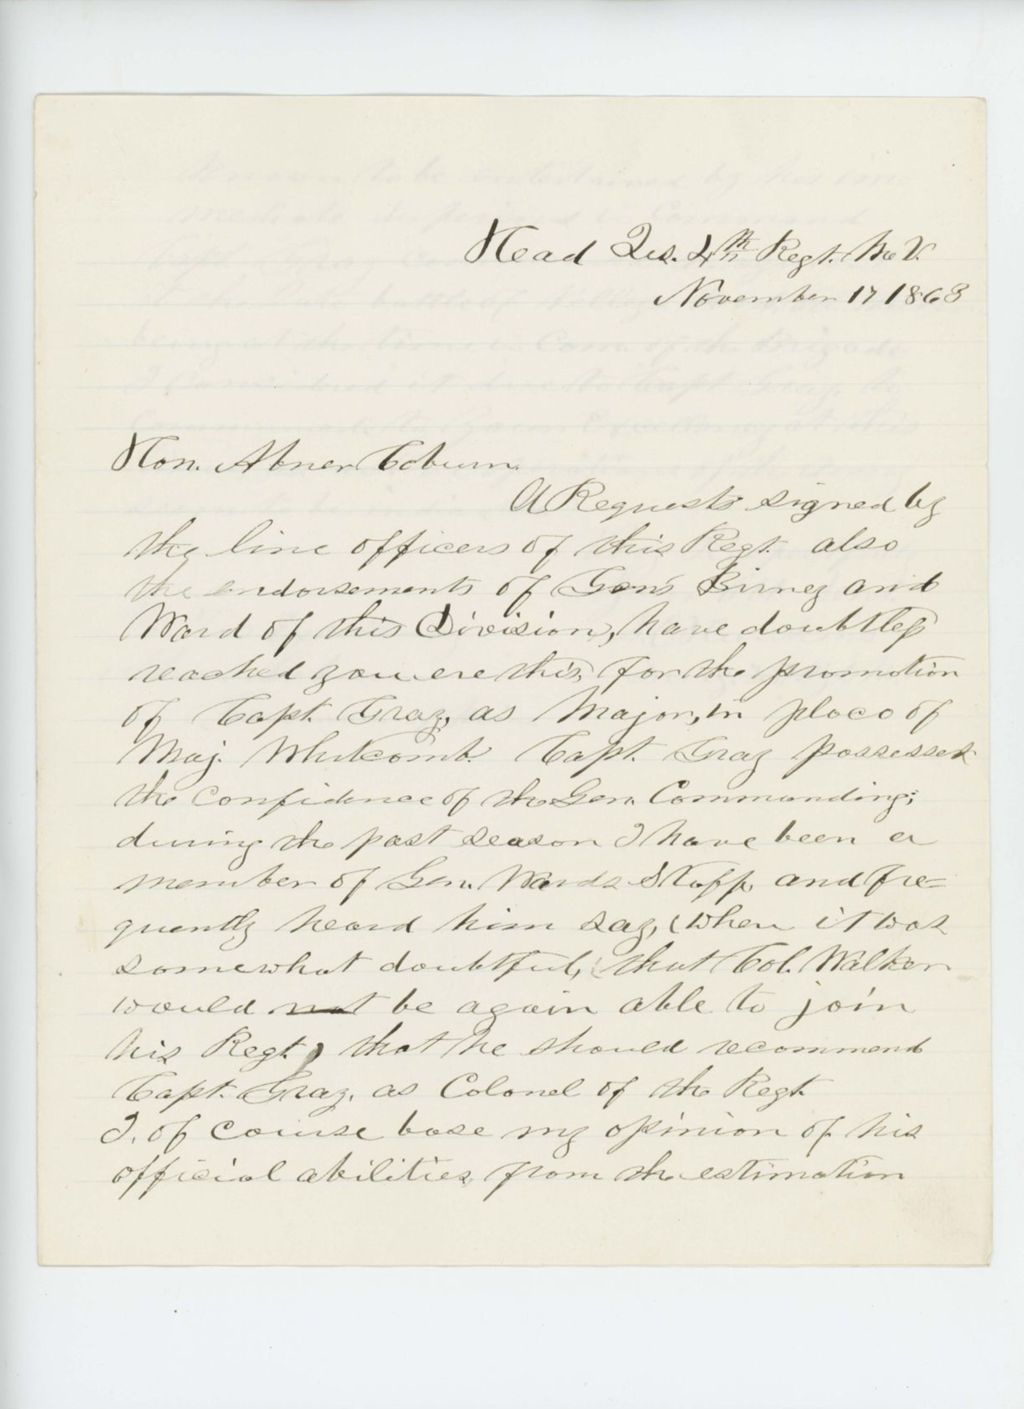 Head Qrs. 4th Regt. Me V.
November 17 1863
Hon. Abner Coburn.
A Requests signed by
the line officers of this Regt. also
the endorsements of Gen's Birney and
Ward of this Division, have doubtless
reached you ere this, for the promotion
of Capt. Gray, as Major, in place of
Maj. Whitcomb. Capt. Gray possesses
the confidence of the Gen. Commanding;
during the past season I have been a
member of Gen. Wards Staff, and fre=
quently heard him say, (when it was
somewhat doubtful, that Col. Walker
would not be again able to join
his Regt) that he should recommend
Capt. Gray, as Colonel of the Regt.
I, of course base my opinion of his
official abilities, from the estimation